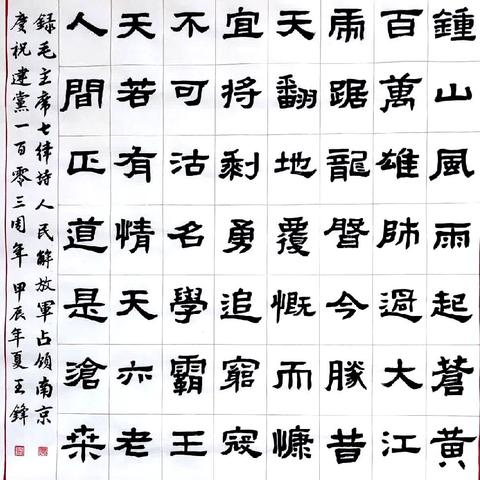 鍾山風雨起蒼黄
百萬雄師過大江
虎踞龍盤今勝昔
天翻地覆慨而慷
宜將剩勇追窮寇
不可沽名學霸王
天若有情天亦老
人間正道是滄桒
録毛主席七律詩人民解放軍占領南京
慶祝建黨一百零三周年 甲辰年夏王鋒